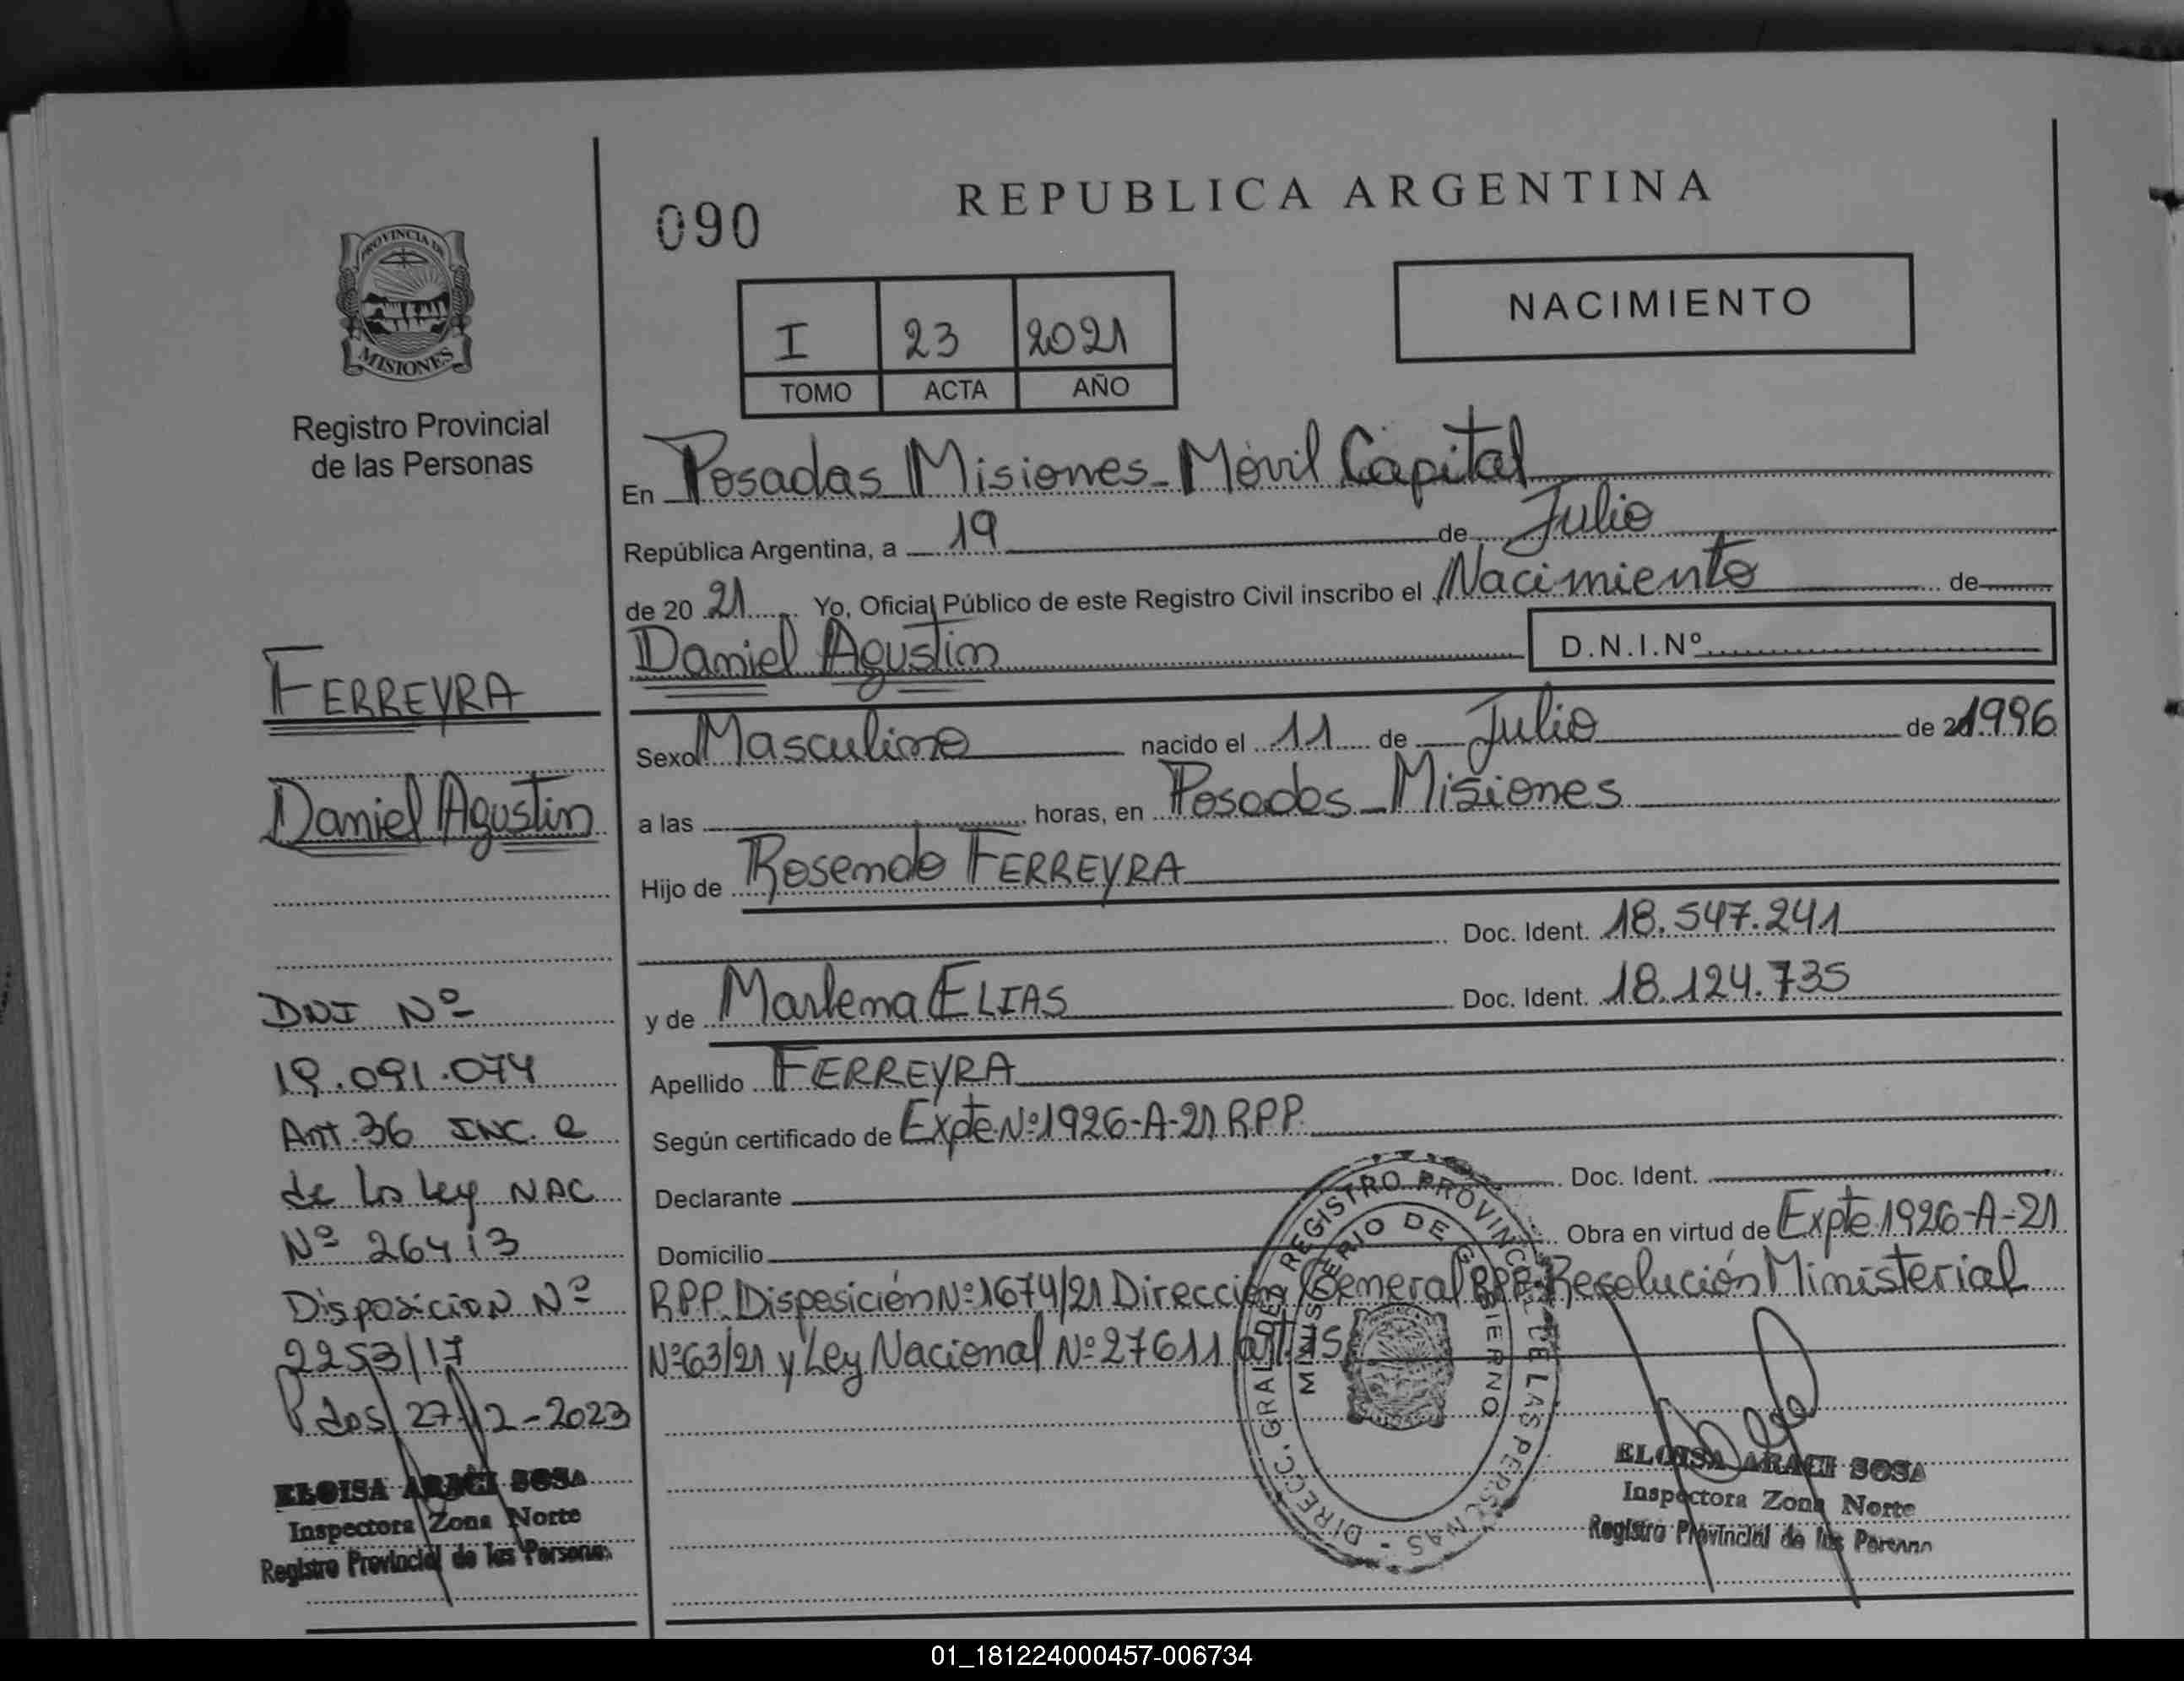 PROVINCIA DE
MISIONES
Registro Provincial
de las Personas
FERREYRA
Daniel Agustin
DNI Nº
19.091.074
Art. 36 INC. C
de la Ley NAC
Nº 26413
Disposicion Nº
2253/17
Pdas 27-12-2023
ELOISA ARACI SOSA
Inspectora Zona Norte
Registro Provincial de las Personas
090
REPUBLICA ARGENTINA
I 23 2021
TOMO ACTA AÑO
NACIMIENTO
En Posadas Misiones - Móvil Capital
República Argentina, a 19 de Julio
de 20 21 Yo, Oficial Público de este Registro Civil inscribo el Nacimiento de
Daniel Agustin D.N.I.Nº
Sexo Masculino nacido el 11 de Julio de 1996
a las horas, en Posadas - Misiones
Hijo de Rosendo FERREYRA
Doc. Ident. 18.547.241
y de Marlena ELIAS Doc. Ident. 18.124.735
Apellido FERREYRA
Según certificado de Expte Nº 1926-A-21 R.P.P.
Declarante Doc. Ident.
Domicilio Obra en virtud de Expte 1926-A-21
R.P.P. Disposición Nº 1674/21 Dirección General R.P.P. Resolución Ministerial
Nº 63/21 y Ley Nacional Nº 27611 art.
DIRECC. GRAL. DE REGISTRO PROVINCIAL DE LAS PERSONAS -
MINISTERIO DE GOBIERNO
ELOISA ARACI SOSA
Inspectora Zona Norte
Registro Provincial de las Personas
01_181224000457-006734